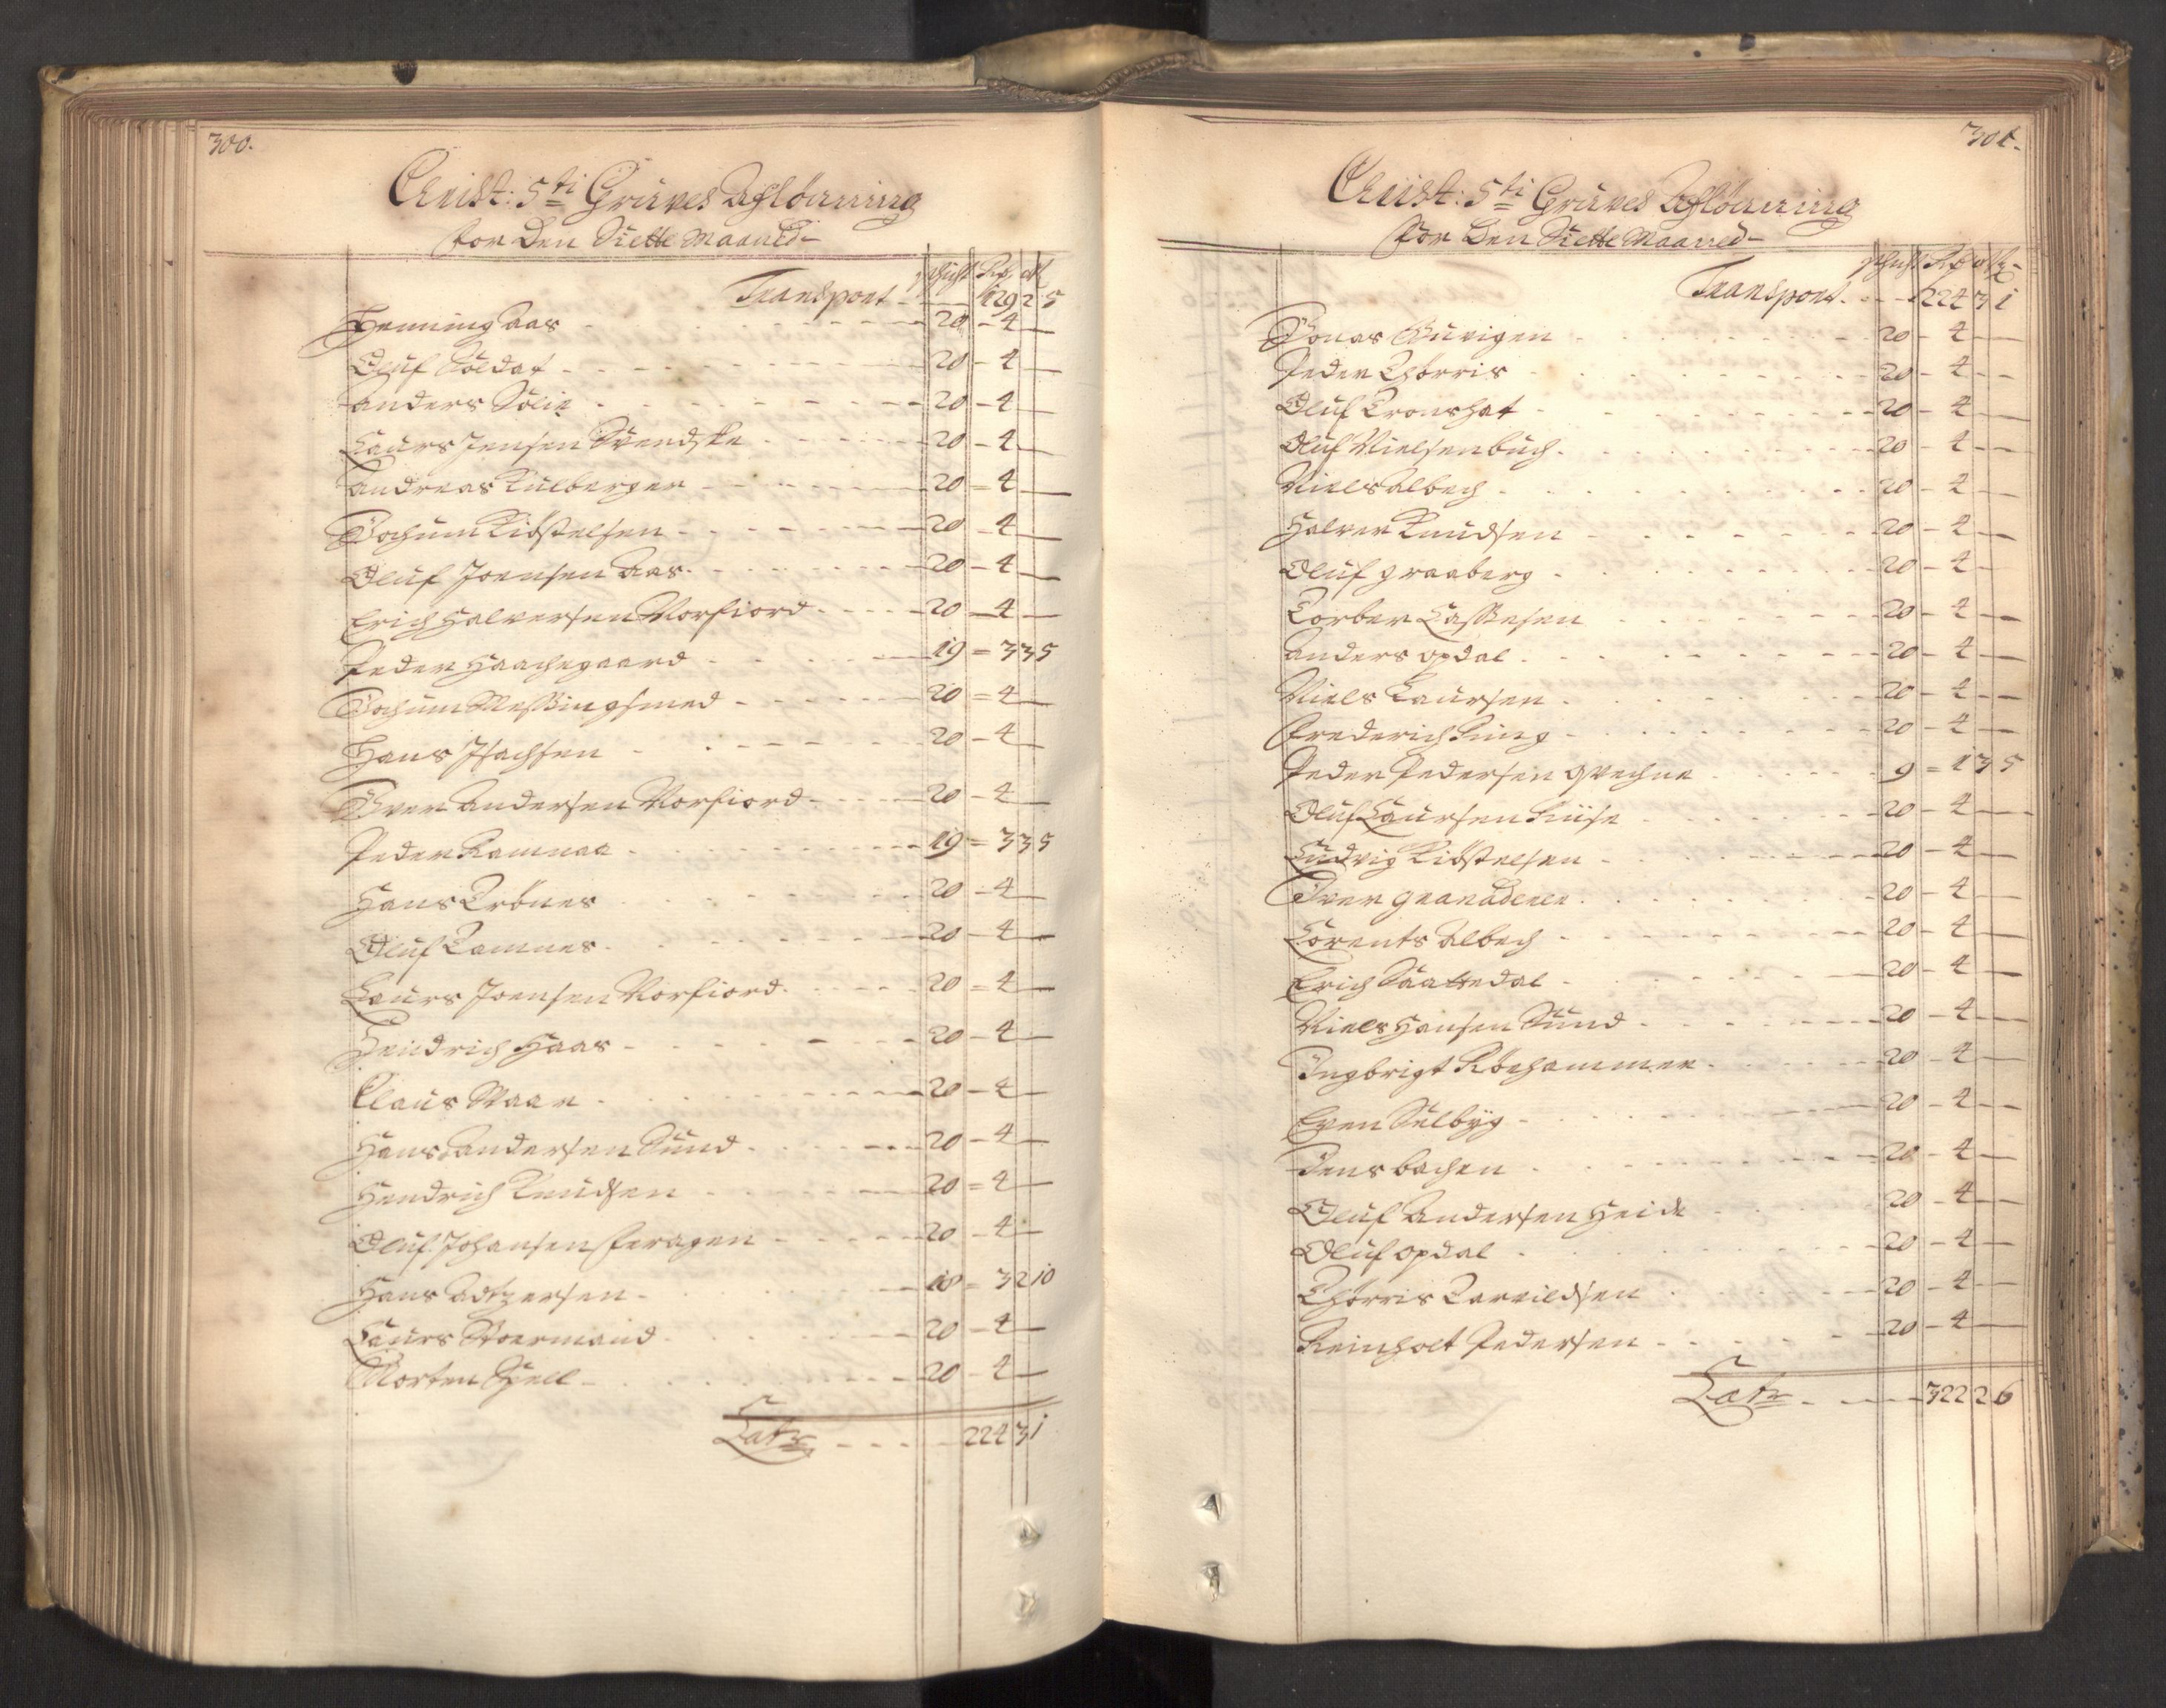 300.
Christ: 5ti Gruves Afflönning
for Den Siette Maaned
schicht Rdr ort ß
Transport - - 129 2 5
Henning Aas - 20 - 4 -
Oluf Soldat - 20 - 4 -
Anders Solie - 20 - 4 -
Laurs Jensen Svendske - 20 - 4 -
Andreas Kulberger - 20 = 4 -
Jochum Kiöstelsen - 20 - 4 -
Oluf Joensen Aas - 20 - 4 -
Erich Halversen Norfiord - 20 - 4 -
Peder Haachegaard - 19 = 3 3 5
Jochum Messingsmed - 20 = 4 -
Hans Isachsen - 20 - 4 -
Iver Andersen Norfiord - 20 - 4 -
Peder Ramnaa - 19 = 3 3 5
Hans Trönes - 20 - 4 -
Oluf Tamnes - 20 - 4 -
Laurs Joensen Norfiord - 20 = 4 -
Hendrich Haas - 20 - 4 -
Claus Staar - 20 - 4 -
Hans Andersen Sund - 20 - 4 -
Hendrich Knudsen - 20 = 4 -
Oluf Johansen Feragen - 20 - 4 -
Hans Adtzersen - 18 = 3 2 10
Laurs Stoermand - 20 - 4 -
Morten Spell - 20 - 4 -
Latr - - - 224 3 1
301.
Christ: 5ti Gruves Afflönning
for Den Siette Maaned
schicht Rdr ort ß
Transport - - - 224 3 1
Jonas Gurigen - 20 - 4 -
Peder Thorris - 20 - 4 -
Oluf Tronshat - 20 - 4 -
Oluf Nielsen buch - 20 - 4 -
Niels Albech - 20 - 4 -
Halver Knudsen - 20 - 4 -
Oluf graaberg - 20 - 4 -
Torber Lassesen - 20 - 4 -
Anders opdal - 20 - 4 -
Niels Laursen - 20 - 4 -
Frederich Ring - 20 - 4 -
Peder Pedersen qvechne - 9 = 1 3 5
Oluf Laursen Kuise - 20 - 4 -
Ludvig Kiöstelsen - 20 - 4 -
Iver granaderer - 20 - 4 -
Lorents Albech - 20 - 4 -
Erich Saattedal - 20 - 4 -
Niels Hansen Sund - 20 - 4 -
Ingbrigt Röehammer - 20 - 4 -
Even Sülbÿg - 20 - 4 -
Jens bachen - 20 - 4 -
Oluf Andersen Heide - 20 - 4 -
Oluf opdal - 20 - 4 -
Thorris Tarvildsen - 20 - 4 -
Reinholt Pedersen - 20 - 4 -
Latr - - - 322 2 6